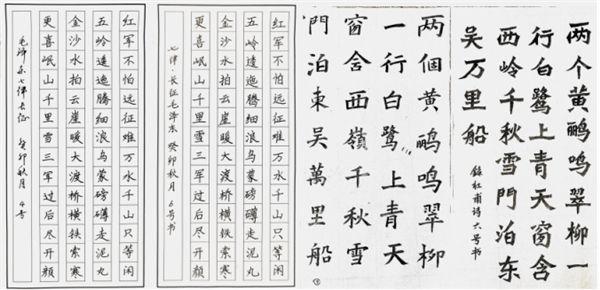 红军不怕远征难万水千山只等闲
五岭逶迤腾细浪乌蒙磅礴走泥丸
金沙水拍云崖暖大渡桥横铁索寒
更喜岷山千里雪三军过后尽开颜
毛泽东七律长征 癸卯秋月 4号
红军不怕远征难万水千山只等闲
五岭逶迤腾细浪乌蒙磅礴走泥丸
金沙水拍云崖暖大渡桥横铁索寒
更喜岷山千里雪三军过后尽开颜
七律·长征毛泽东 癸卯秋月 6号书
两個黄鹂鸣翠柳
一行白鹭上青天
窗含西嶺千秋雪
門泊東吴萬里船
两个黄鹂鸣翠柳一
行白鹭上青天窗含
西岭千秋雪門泊东
吴万里船
錄杜甫诗六号书